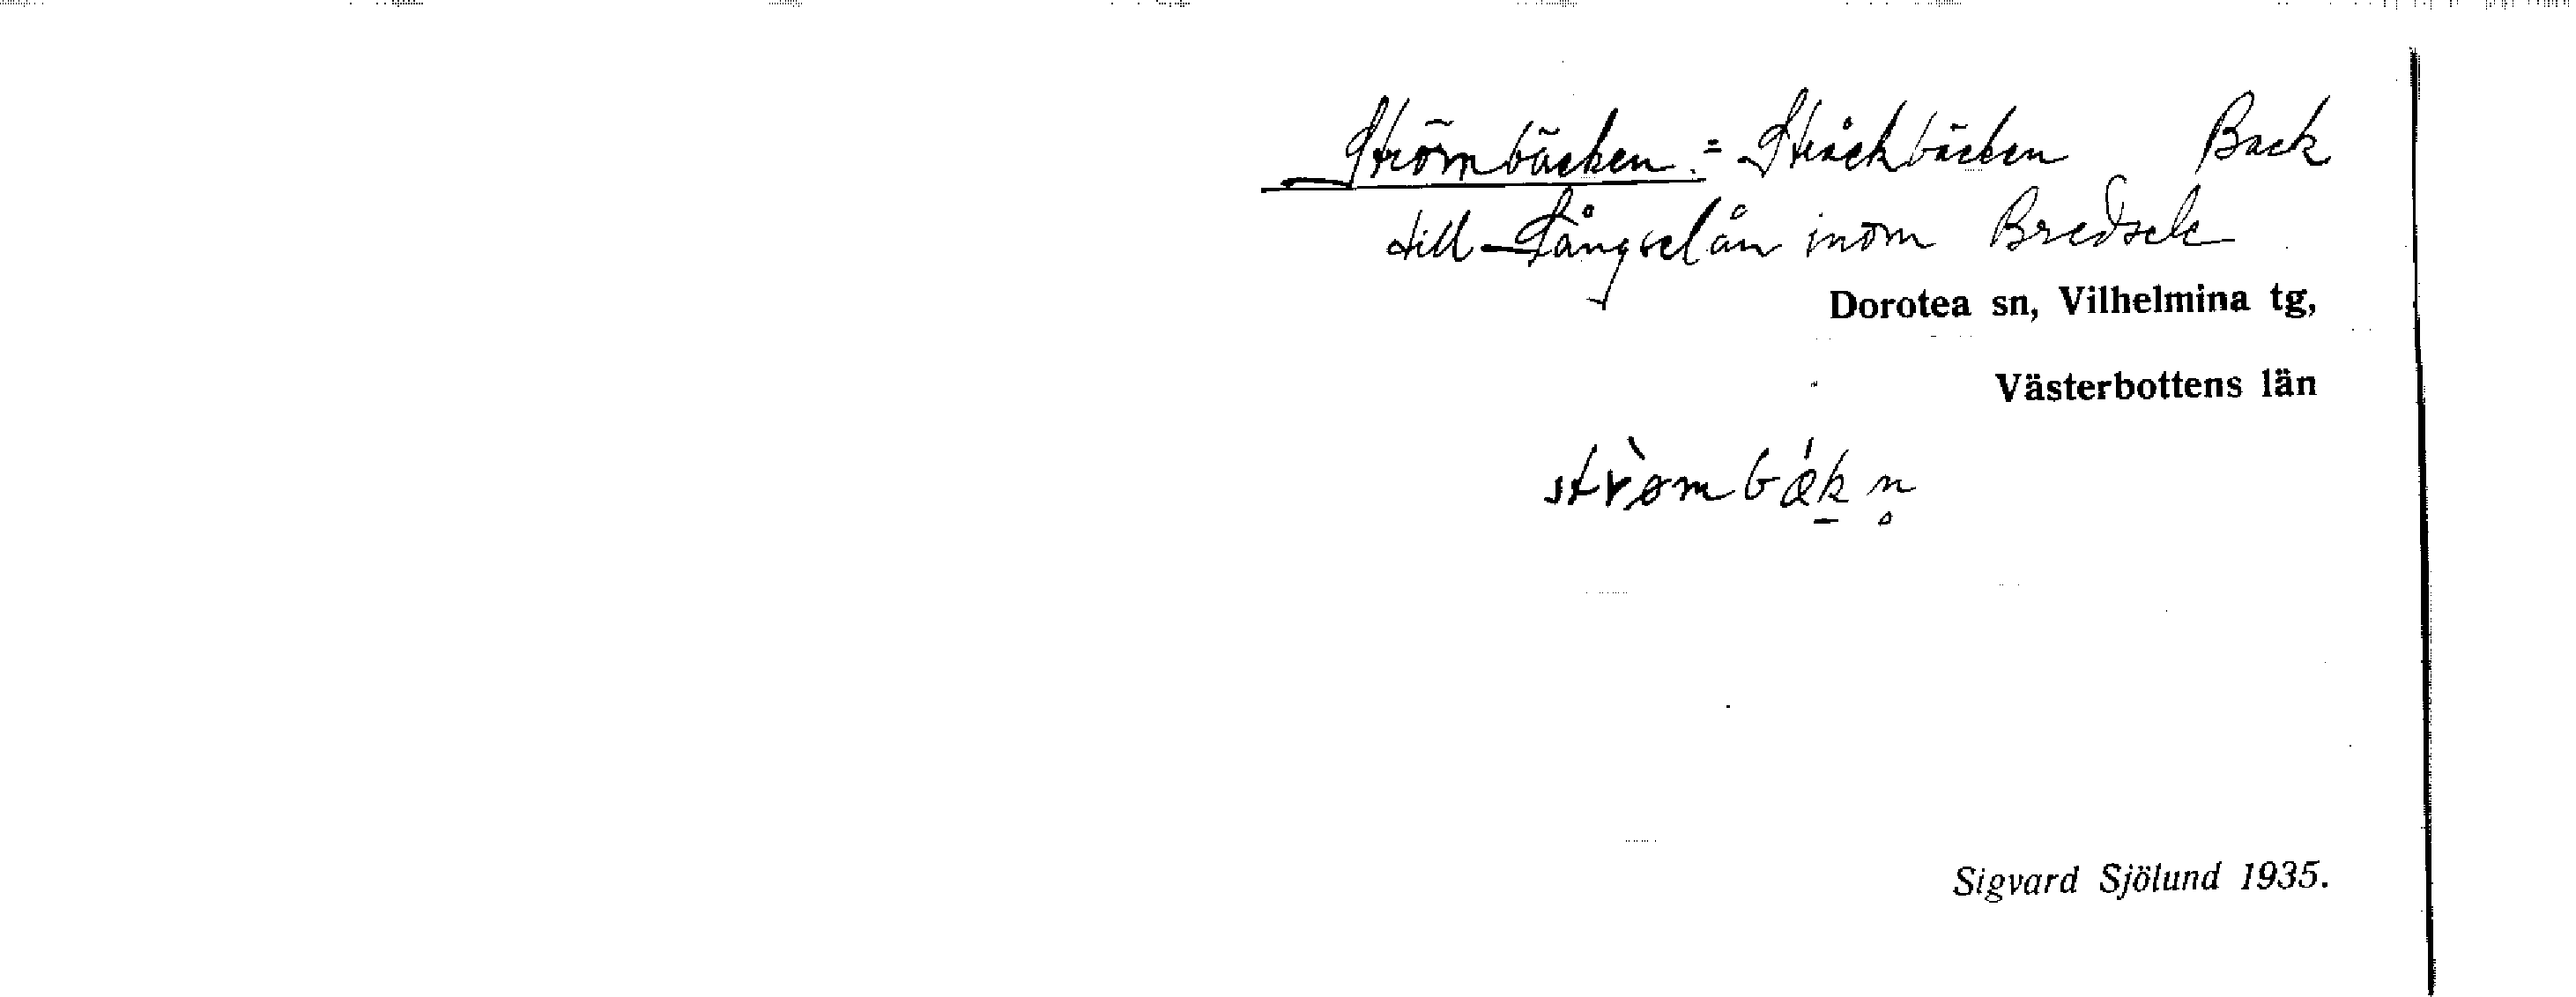 Strömbäcken = Stråckbäcken Bäck
till Långselån inom Bredsele
Dorotea sn, Vilhelmina tg,
Västerbottens län
strømbækn̥
Sigvard Sjölund 1935.